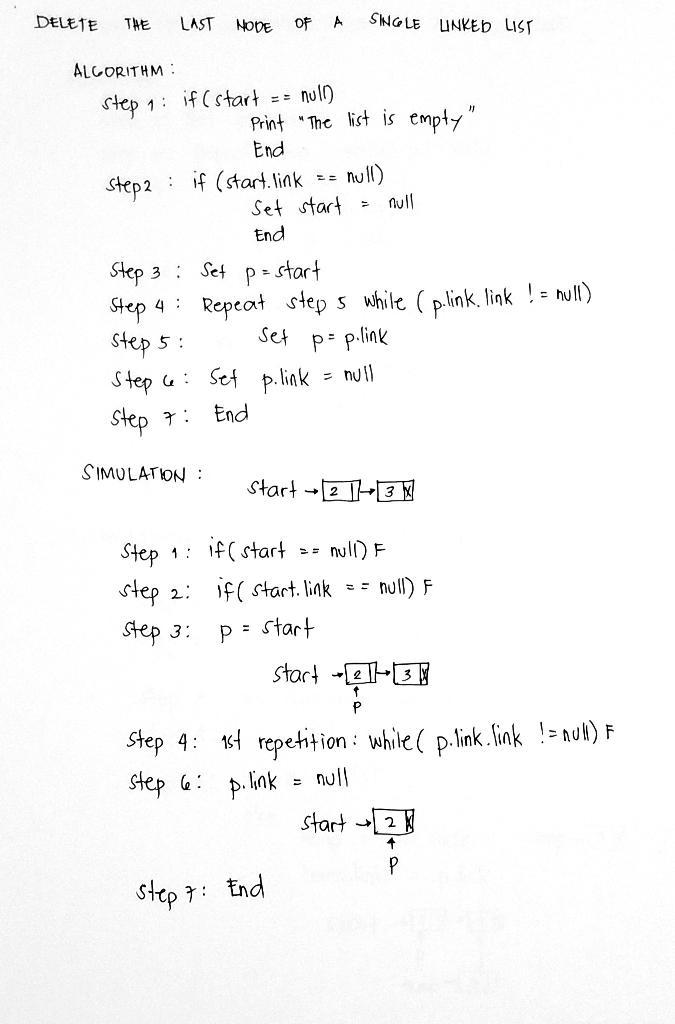 DELETE THE LAST NODE OF A SINGLE LINKED LIST
ALGORITHM :
Step 1 : if (start == null)
Print "The list is empty"
End
Step 2 : if (start.link == null)
Set start = null
End
Step 3 : Set p = start
Step 4 : Repeat step 5 while ( p.link.link != null)
Step 5 : Set p = p.link
Step 6 : Set p.link = null
Step 7 : End
SIMULATION :
Start → 2 → 3 X
Step 1 : if( start == null) F
Step 2 : if( start.link == null) F
Step 3 : p = start
Start → 2 → 3 X
↑
p
Step 4 : 1st repetition : while( p.link.link != null) F
Step 6 : p.link = null
Start → 2 X
↑
p
Step 7 : End